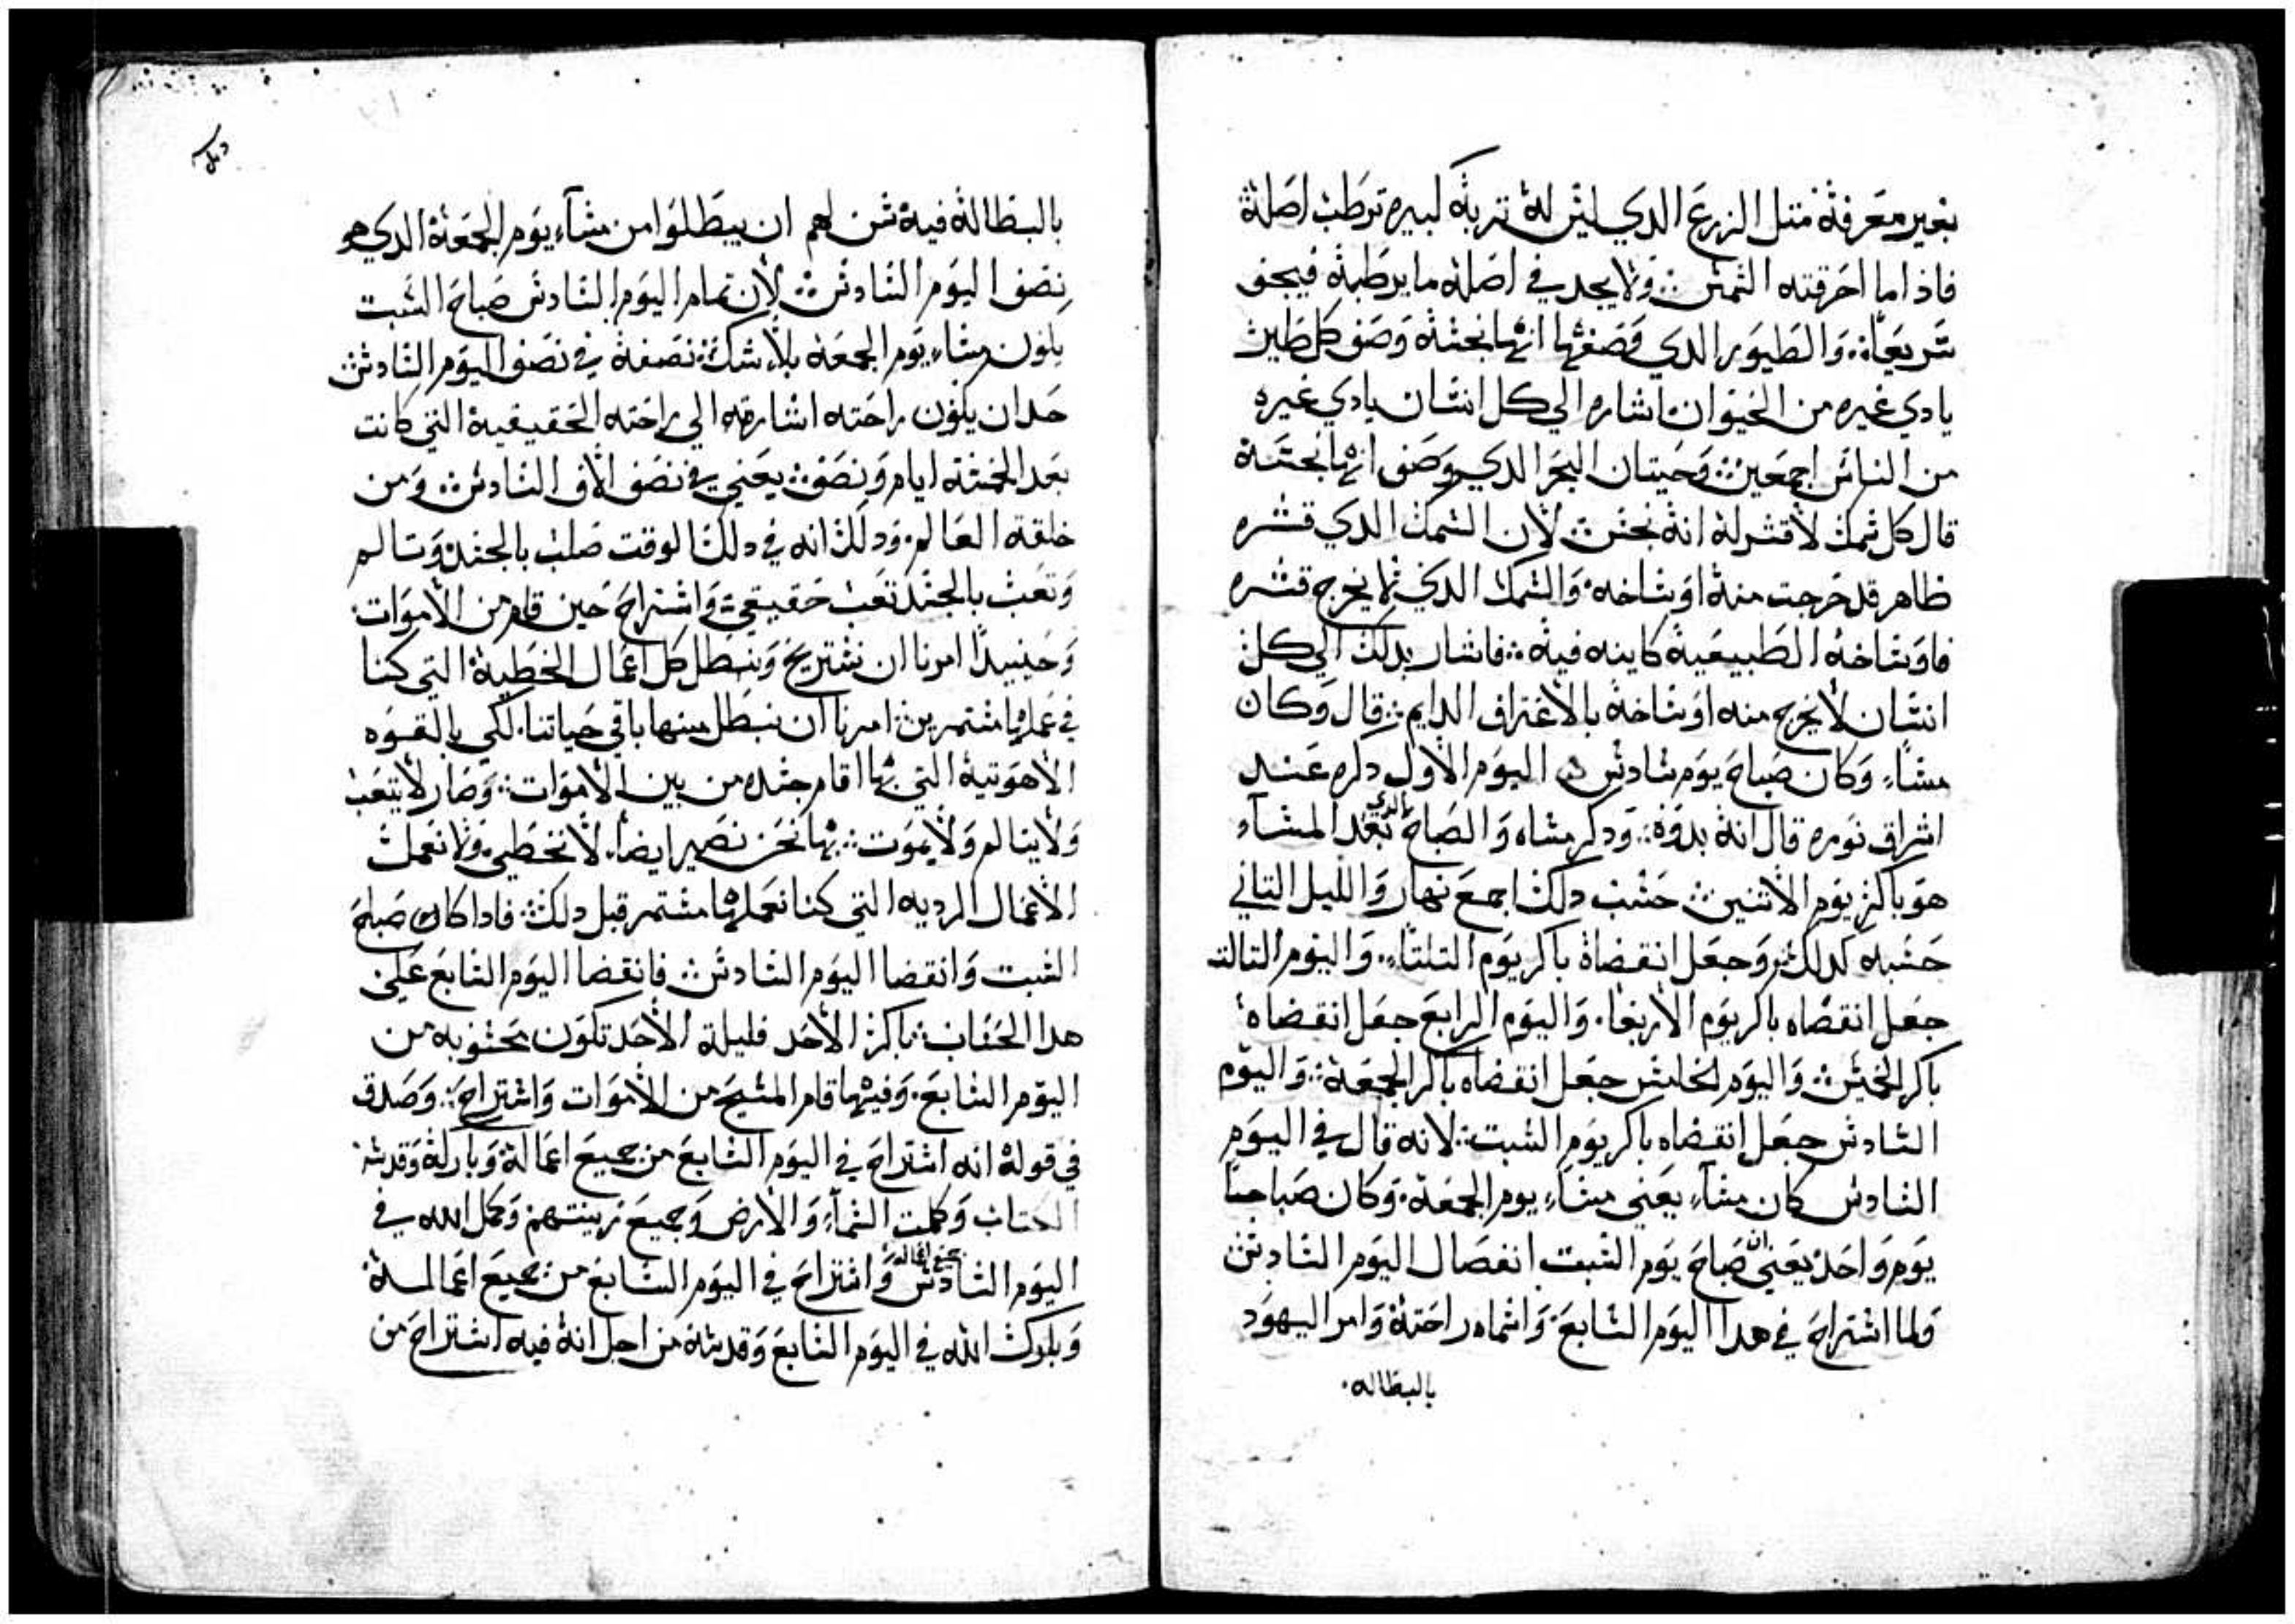 بغير معرفة متل الزرع الدي ليس له تربه كبيره ترطب اصله
فاذا ما احرقته الشمس ولا يجد في اصله ما يرطبه فيجف
سريعا والطيور الدي وصفها انها نجسة وصف كل طير
يادي غيره من الحيوان اشاره الي كل انسان يادي غيره
من الناس اجمعين وحيتان البحر الدي وصف انها نجسة
قال كل سمك لا قشر له انه نجس لان السمك الدي قشره
ظاهر قد خرجت منه اوساخه والسمك الدي لم يخرج قشره
فاوساخه الطبيعية كاينه فيه فاشار بدلك الي كل
انسان لا يخرج منه اوساخه بالاعتراف الدايم قال وكان
مساء وكان صباح يوم سادس اليوم الاول دكره عند
اشراق نوره قال انه بدوه ودكر مساه والصباح الدي بعد المساء
هو باكر يوم الاثنين حسب دلك اجمع نهار والليل التاني
حسبه كدلك وجعل انقضاه باكر يوم التلتاء واليوم التالت
جعل انقضاه باكر يوم الاربعا واليوم الرابع جعل انقضاه
باكر الخميس واليوم الخامس جعل انقضاه باكر الجمعة واليوم
السادس جعل انقضاه باكر يوم السبت لانه قال في اليوم
السادس كان مساء يعني مساء يوم الجمعة وكان صباحا
يوم واحد يعني ان صباح يوم السبت انفصال اليوم السادس
ولما استراح في هدا اليوم السابع واسماه راحته وامر اليهود
بالبطاله
بالبطالة فيه سن لهم ان يبطلوا من مساء يوم الجمعة الدي هو
نصف اليوم السادس لان تمام اليوم السادس صباح السبت
يكون مساء يوم الجمعة بلا شك نصفه في نصف اليوم السادس
حد ان يكون راحته اشارته الي راحته الحقيقية التي كانت
بعد الخمسة ايام ونصف يعني في نصف الاف السادس ومن
خلقة العالم ودلك انه في دلك الوقت صلب بالجسد وتالم
وتعب بالجسد تعب حقيقي واستراح حين قام من الاموات
وحينيدا امرنا ان نستريح ونبطل كل اعمال الخطية التي كنا
في عملها مستمرين امرنا ان نبطل منها باقي حياتنا لكي بالقوه
الاهوتية التي بها اقام جسده من بين الاموات وصار لا يتعب
ولا يتالم ولا يموت بها نحن نصير ايضا لا نخطي ولا نعمل
الاعمال الرديه التي كنا نعملها مستمر قبل دلك فادا كان صباح
السبت وانقضا اليوم السادس فانقضا اليوم السابع علي
هدا الحساب باكر الاحد فليلة الاحد تكون محسوبه من
اليوم السابع وفيها قام المسيح من الاموات واستراح وصدق
في قوله انه استراح في اليوم السابع من جميع اعماله وباركه وقدسه
الكتاب وكملت السماء والارض وجميع زينتهم وكمل الله في
اليوم السادس جميع اعماله واستراح في اليوم السابع من جميع اعماله
وبارك الله في اليوم السابع وقدسه من اجل انه فيه استراح من